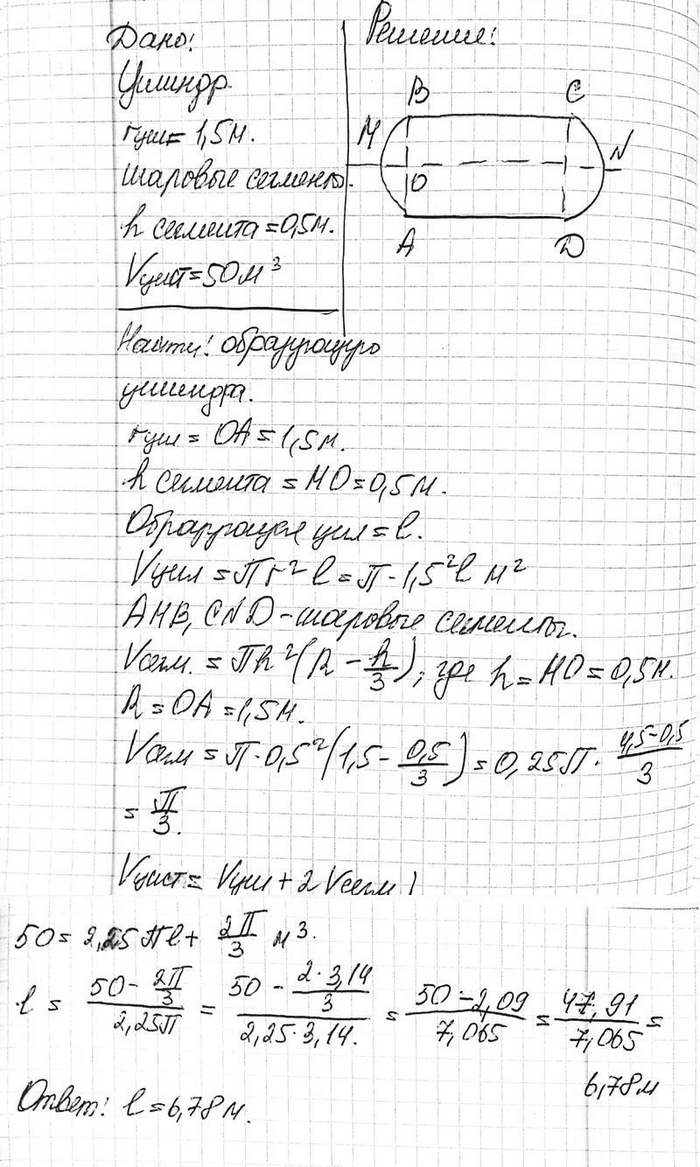 Дано:
Решение:
Цилиндр
rцил= 1,5м.
шаровые сегменты.
h сегмента=0,5м.
Vцист=50м³
B C
M N
O
A D
Найти: образующую
цилиндра.
rцил= OA=1,5м.
h сегмента = MO=0,5м.
Образующая цил=l.
Vцил =πr²l=π·1,5²l м²
AMB, CND-шаровые сегменты.
Vсегм. = πh²(R - h/3), где h=MO=0,5м.
R=OA=1,5м.
Vсегм = π·0,5²(1,5- 0,5/3)=0,25π· 4,5-0,5/3
= π/3.
Vцист= Vцил+2Vсегм!
50= 2,25πl+ 2π/3 м³.
l = 50- 2π/3 / 2,25π = 50 - 2·3,14/3 / 2,25·3,14. = 50-2,09/7,065 = 47,91/7,065 =
6,78м
Ответ: l=6,78м.